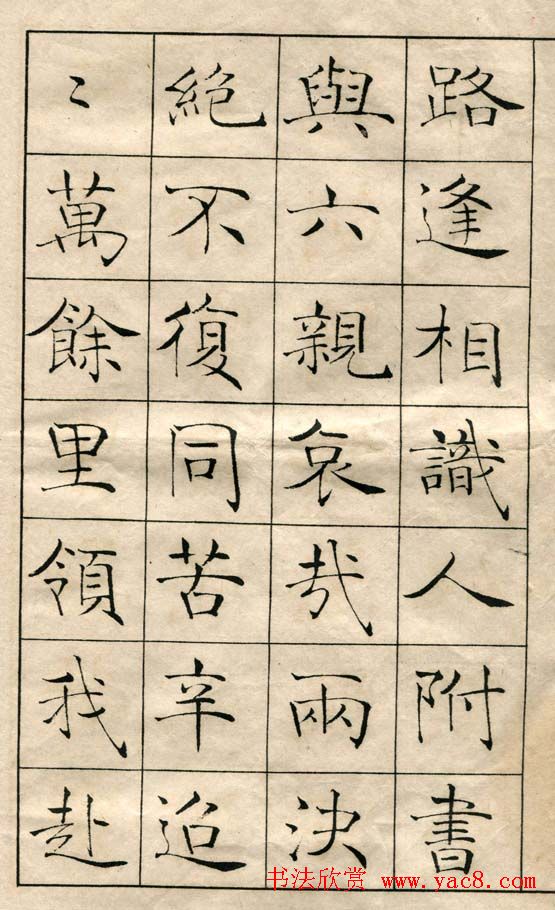 路逢相識人附書
與六親哀哉兩決
絶不復同苦辛迢
〻萬餘里領我赴
书法欣赏 www.yac8.com